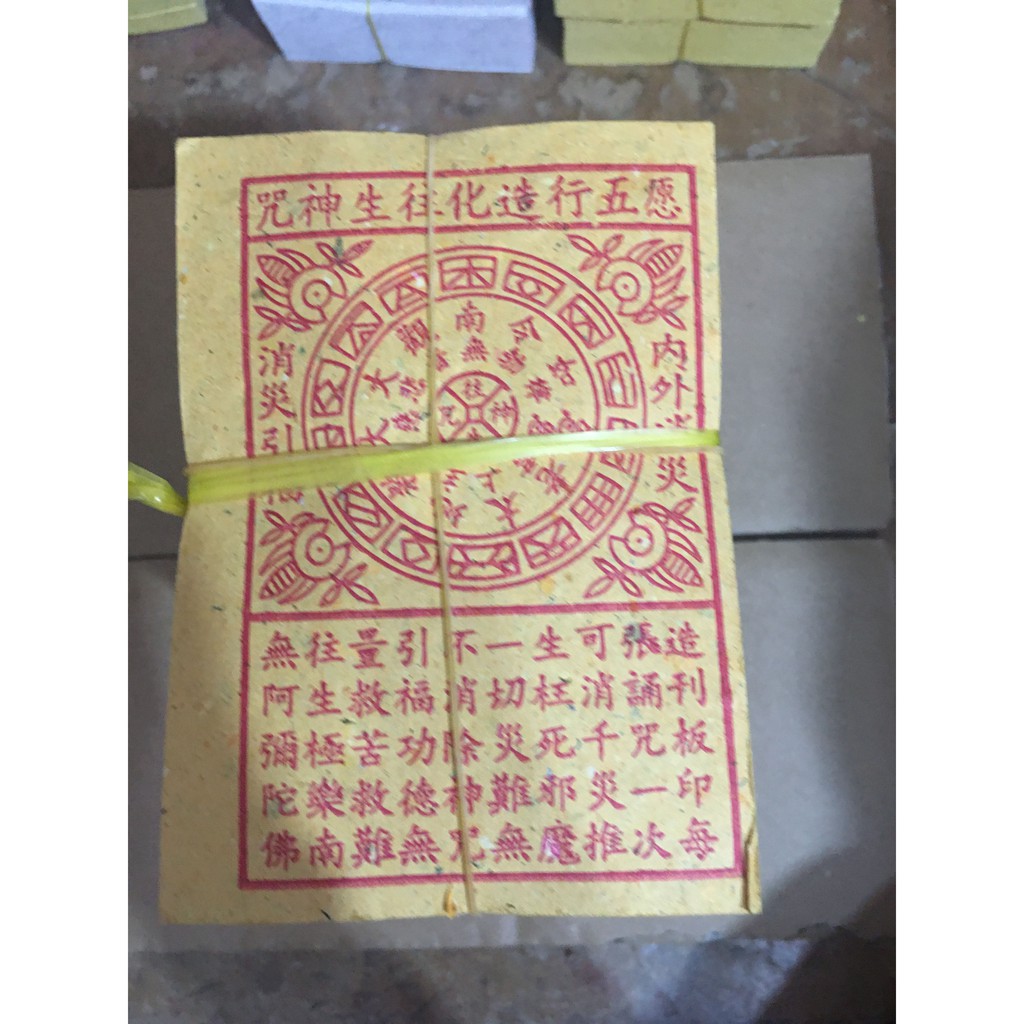 愿五行造化往生神咒
內外消災
消災引福
南無
往神咒
造刊板印每
張誦咒一次
可消千災推
生枉死邪魔
一切災難無
不消除神咒
引福功德無
量救苦救難
往生極樂南
無阿彌陀佛